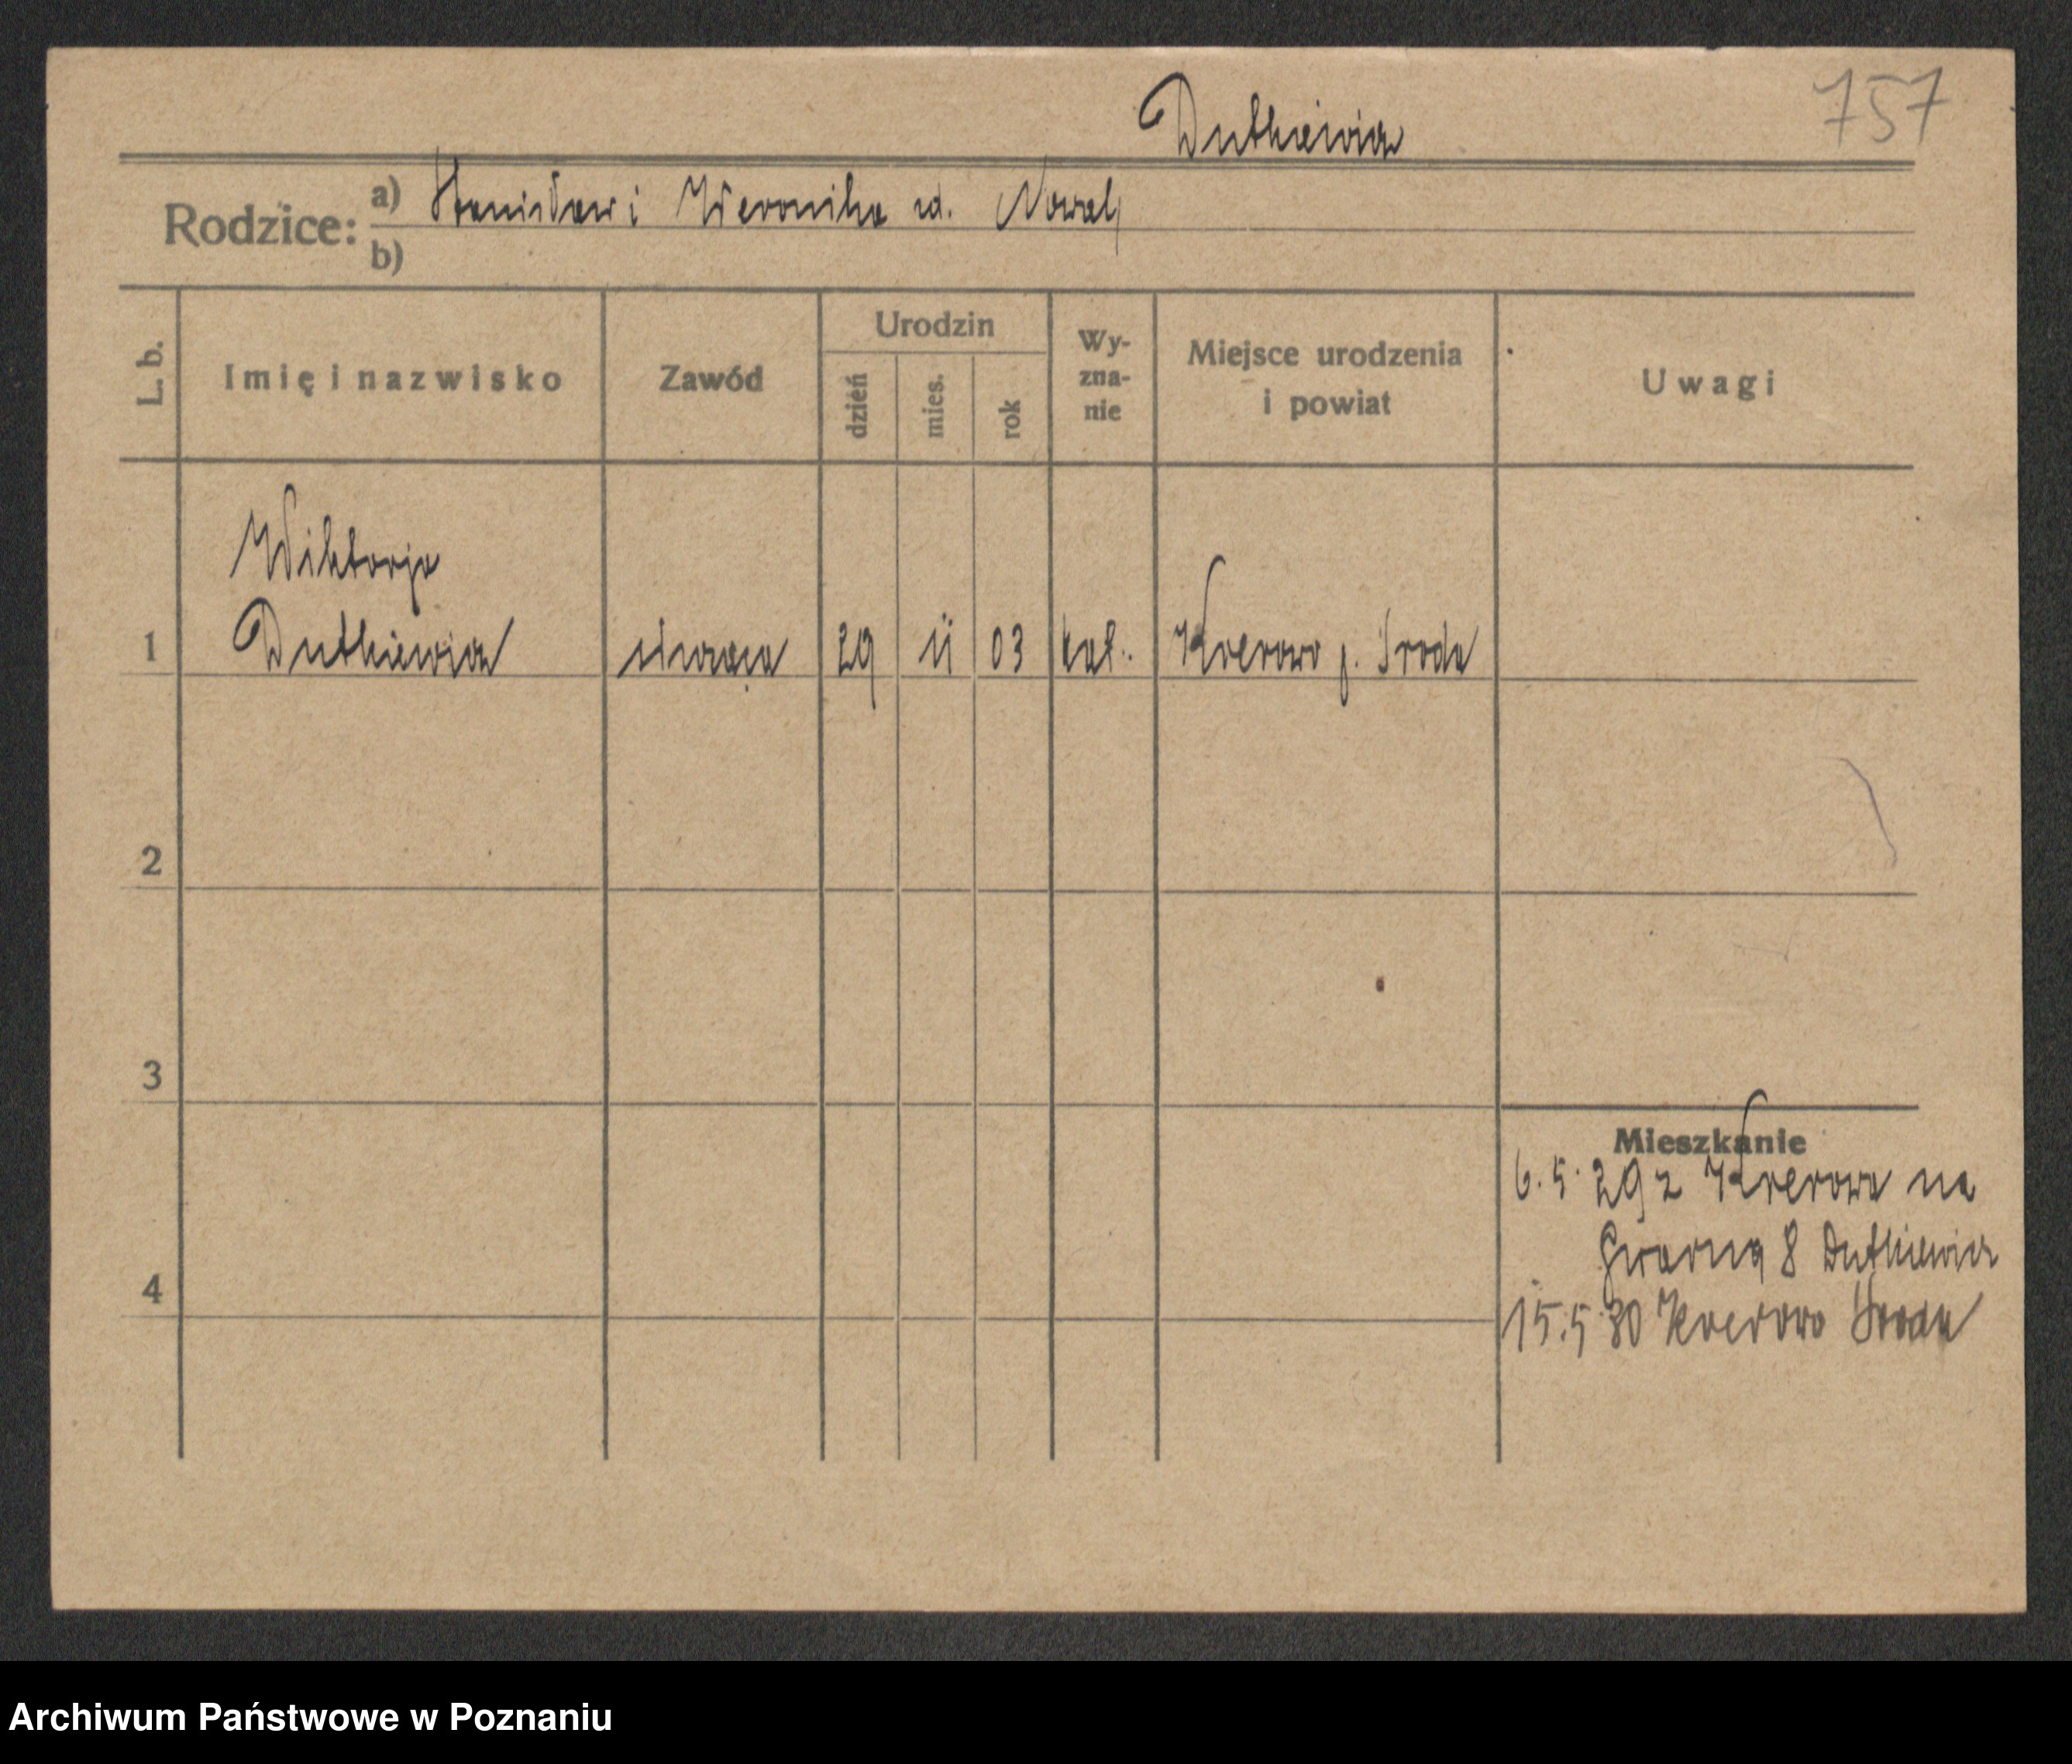 757
Dutkiewicz
Rodzice: a) Stanisław i Weronika zd. Nowak
b)
L. b.
Imię i nazwisko
Zawód
Urodzin
dzień
mies.
rok
Wy-
zna-
nie
Miejsce urodzenia
i powiat
Uwagi
Wiktorja
1 Dutkiewicz 29 11 03 kat. Krerowo p. Środa
2
3
Mieszkanie
6. 5. 29 z Krerowa na
Gwarną 8 Dutkiewicz
4
15.5 30 Krerowo Środa
Archiwum Państwowe w Poznaniu